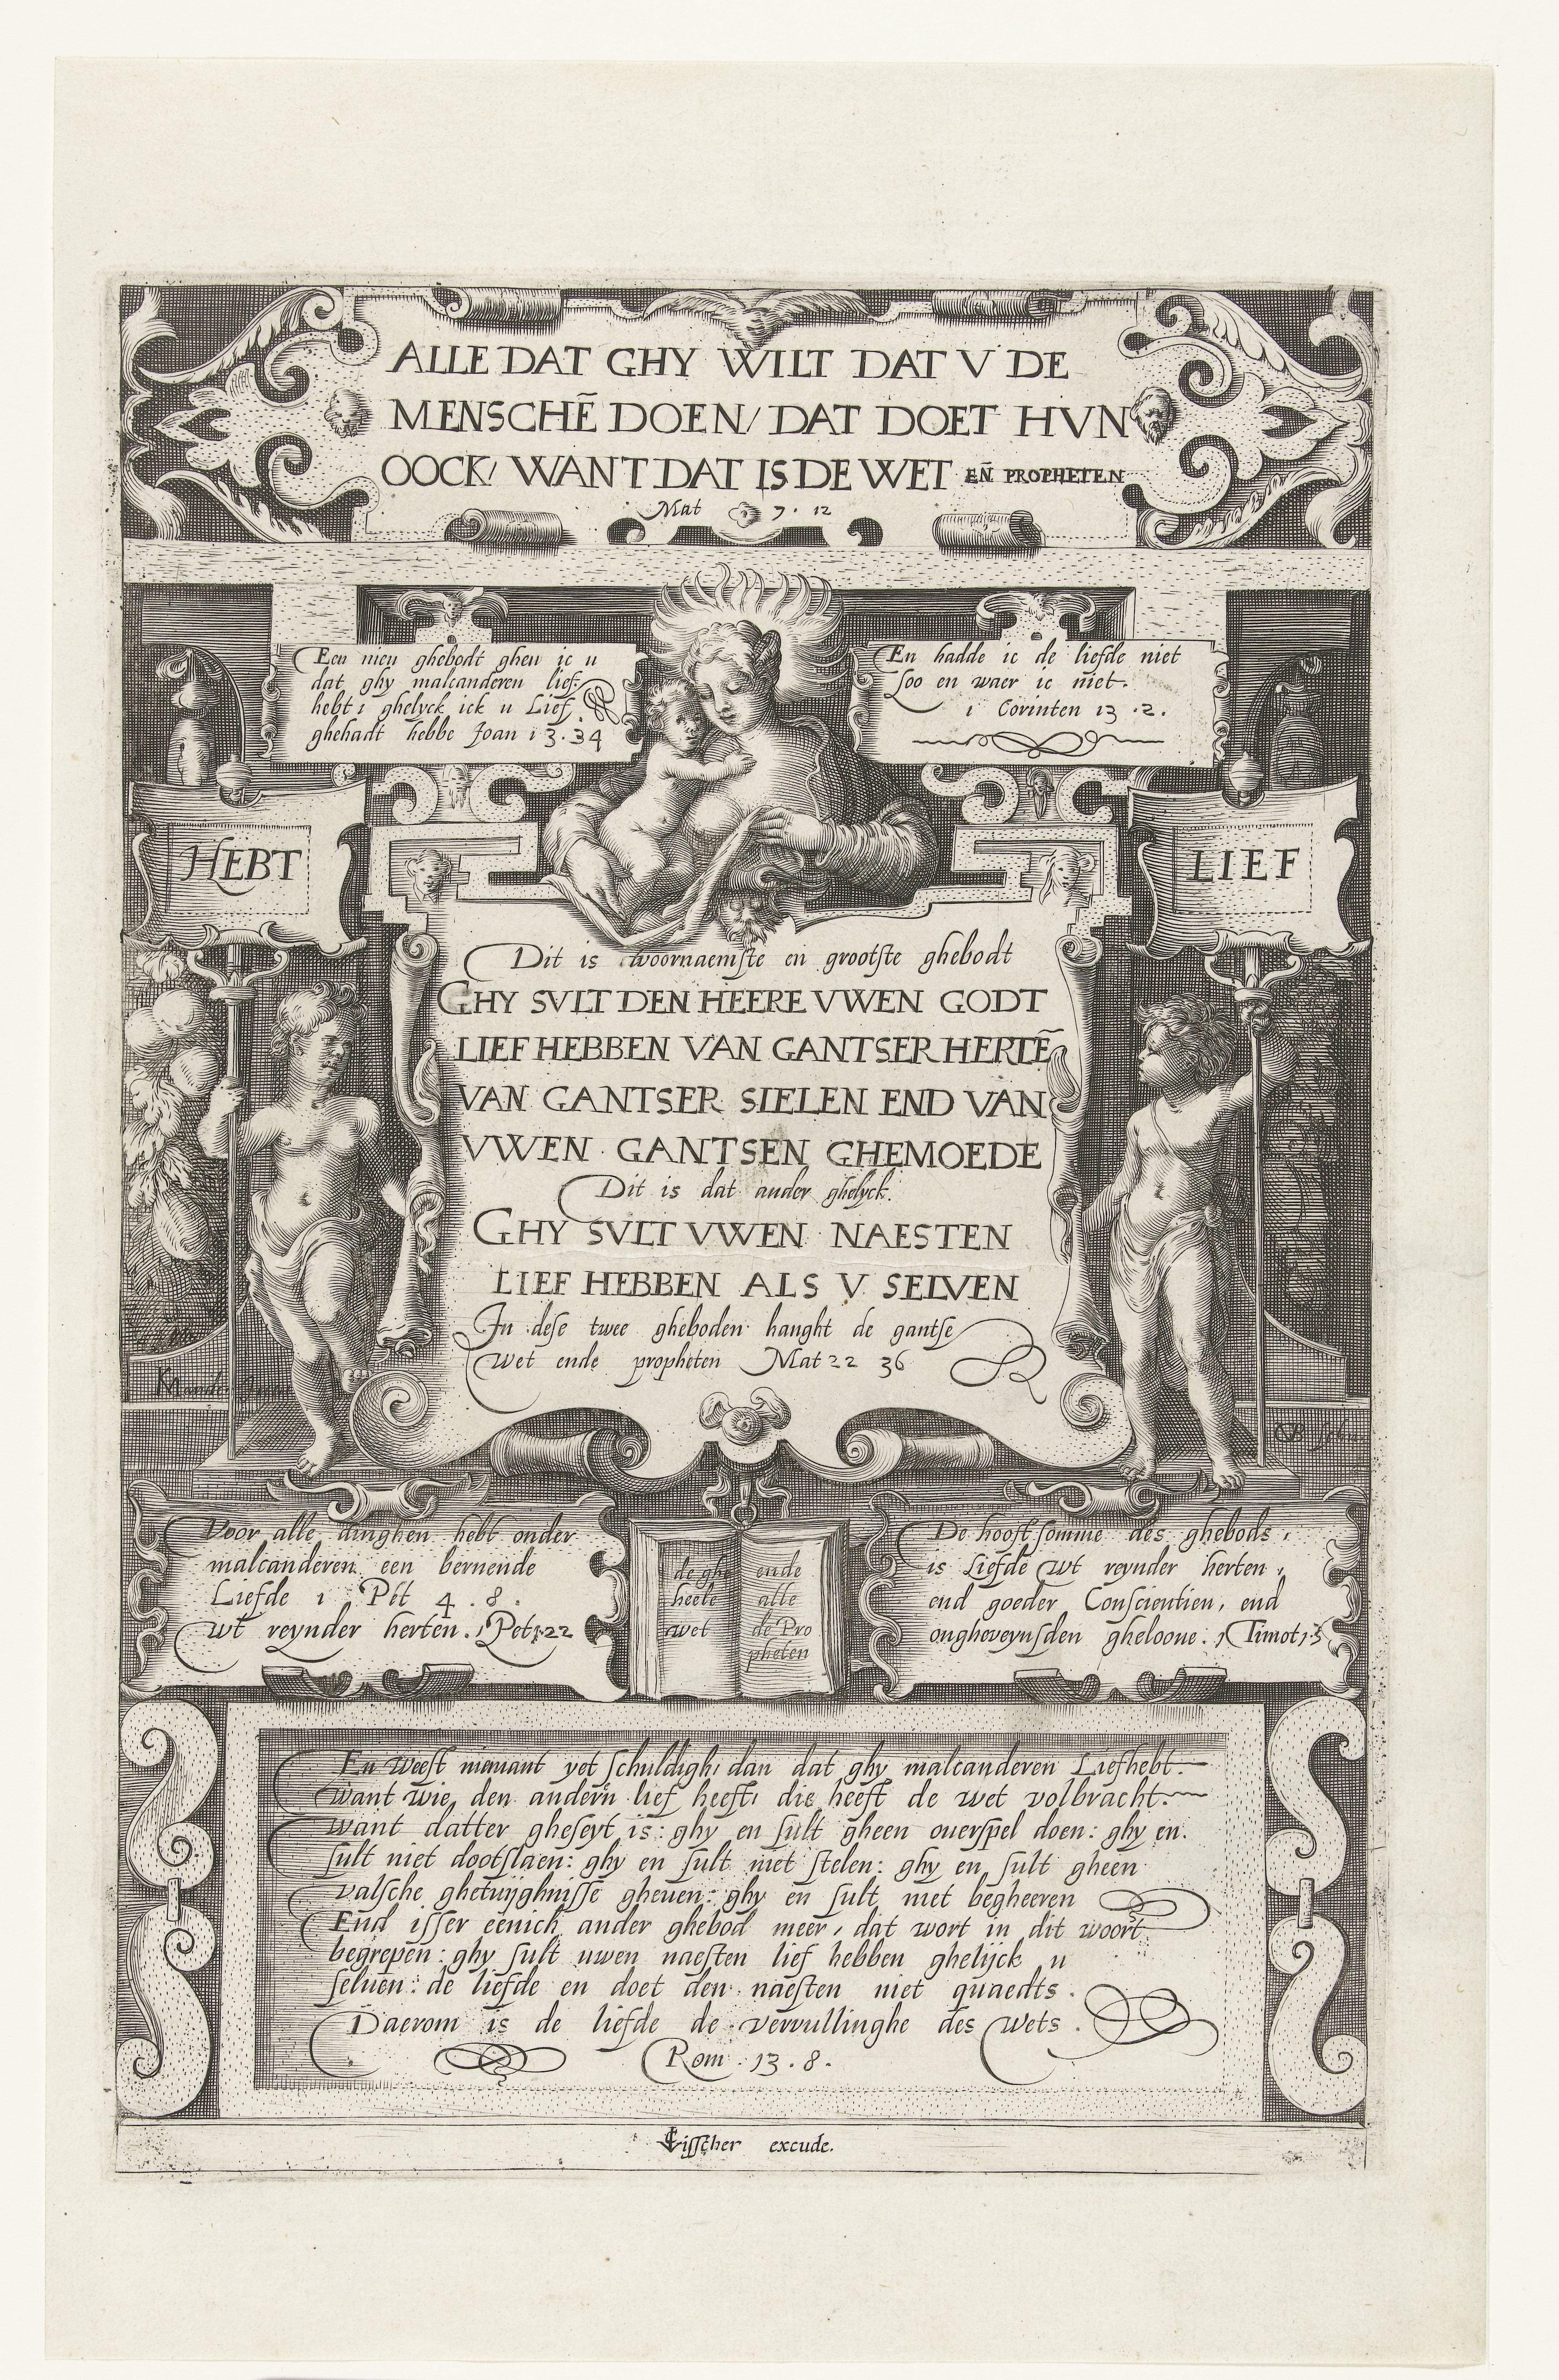 ALLE DAT GHY WILT DAT V DE
MENSCHẼ DOEN/ DAT DOET HVN
OOCK/ WANT DAT IS DE WET EÑ PROPHETEN
Mat 7. 12
Een nieu ghebodt gheu ic u
dat ghy malcanderen lief:
hebt: ghelyck ick u Lief
ghehadt hebbe Joan 13.34
En hadde ic de liefde niet
soo en waer ic niet.
1 Corinten 13.2.
HEBT
LIEF
Dit is tvoornaemste en grootste ghebodt
GHY SVLT DEN HEERE VWEN GODT
LIEF HEBBEN VAN GANTSER HERTẼ
VAN GANTSER SIELEN END VAN
VWEN GANTSEN GHEMOEDE
Dit is dat ander ghelyck.
GHY SVLT VWEN NAESTEN
LIEF HEBBEN ALS V SELVEN
In dese twee gheboden hanght de gantse
Wet ende propheten Mat 22 36
KMander
Voor alle dinghen hebt onder
malcanderen een bernende
Liefde 1 Pet 4.8.
wt reynder herten. 1 Pet 1.22
de ghe
heele
wet
ende
alle
de Pro
pheten
De hooft somme des ghebods,
is Liefde wt reynder herten,
end goeder Conscientien, end
ongheveynsden gheloove. 1 Timot 1.5
En Weest niemant yet schuldigh, dan dat ghy malcanderen Liefhebt.
Want wie den andern lief heeft, die heeft de wet volbracht.
Want datter gheseyt is: ghy en sult gheen overspel doen: ghy en
sult niet dootslaen: ghy en sult niet stelen: ghy en sult gheen
valsche ghetuyghnisse gheven: ghy en sult niet begheeren
End isser eenich ander ghebod meer, dat wort in dit woort
begrepen: ghy sult uwen naesten lief hebben ghelijck u
selven: de liefde en doet den naesten niet quaedts.
Daerom is de liefde de vervullinghe des Wets.
Rom. 13.8.
CVisscher excude.